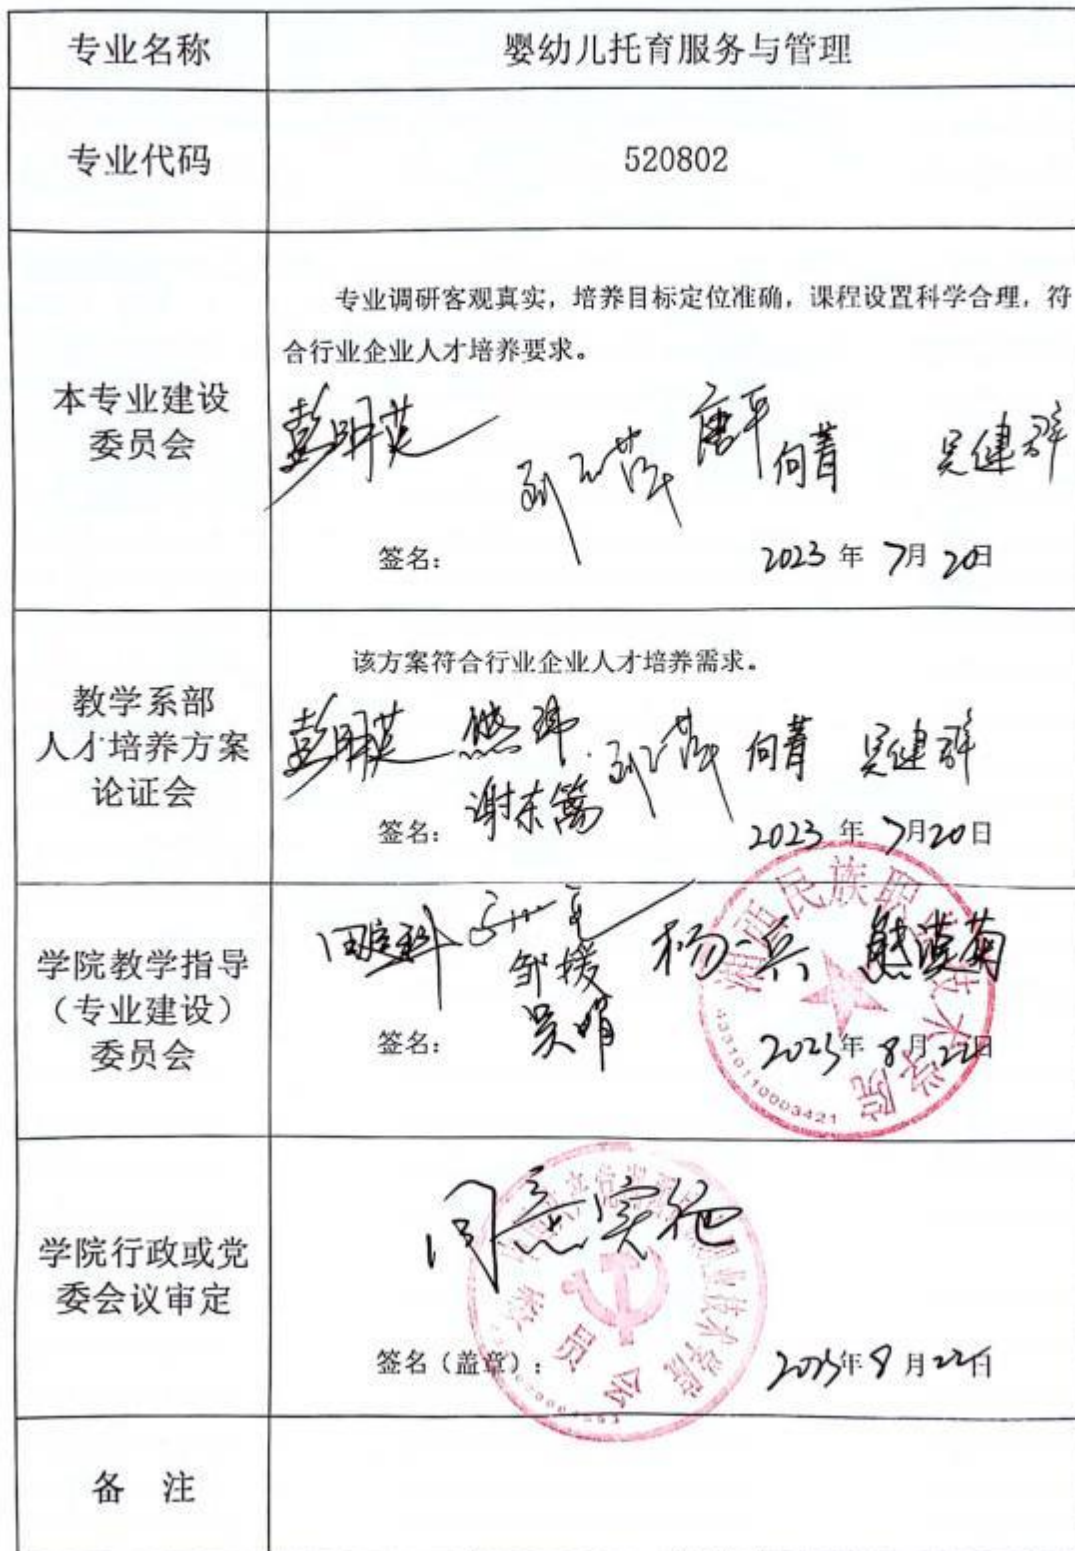 专业名称
婴幼儿托育服务与管理
专业代码
520802
本专业建设
委员会
专业调研客观真实，培养目标定位准确，课程设置科学合理，符
合行业企业人才培养要求。
彭明英
唐平
向菁
吴健群
签名：
2023 年 7月 20日
教学系部
人才培养方案
论证会
该方案符合行业企业人才培养需求。
彭明英 熊玮 向菁 吴健群
谢东篱
签名：
2023 年 7月20日
学院教学指导
（专业建设）
委员会
杨兵
邹媛
吴晴
签名：
2023年 8月22日
湘西民族职业技术学院
4331010003421
学院行政或党
委会议审定
同意实施
职业技术学院
委员会
签名（盖章）：
2023年8月22日
备 注